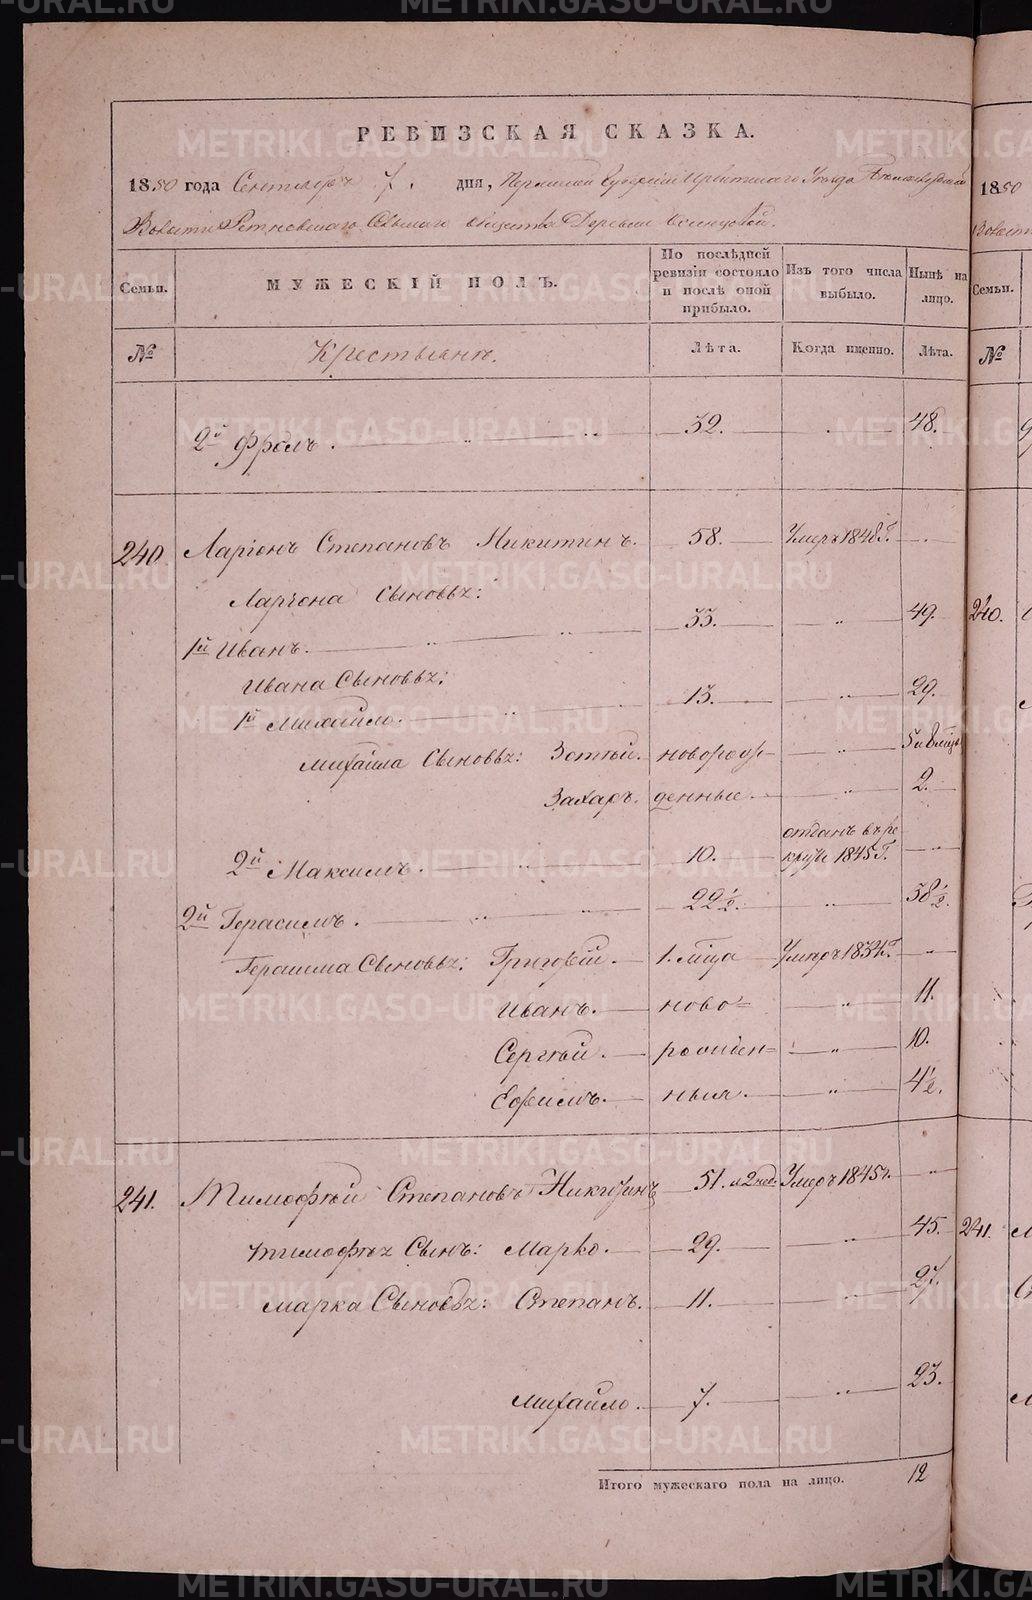 РЕВИЗСКАЯ СКАЗКА.
1850 года Сентября 7. дня, Пермской Губернии Ирбитскаго Уезда
Волости Ретневскаго Сельскаго общества Деревни
Семьи. МУЖЕСКІЙ ПОЛЪ. По послѣдней ревизіи состояло и послѣ оной прибыло. Изъ того числа выбыло. Нынѣ на лицо.
№ Крестьяне. Лѣта. Когда именно. Лѣта.
2й Фролъ. 32. 48.
240. Ларіонъ Степановъ Никитинъ. 58. Умеръ 1848 Г.
Ларіона Сыновья:
1й Иванъ. 33. 49.
Ивана Сыновья:
1й Михайло. 13. 29.
Михайла Сыновья: Зотѣй. новорож- 5 и 8 мѣсц.
Захаръ. денные 2.
2й Максимъ. 10. отданъ въ рекруты 1845 Г.
2й Герасимъ. 22 1/2. 38 1/2.
Герасима Сыновья: Григорій. 1. мѣсца Умеръ 1834 Г.
Иванъ. ново= 11.
Сергѣй. рожден= 10.
Ефимъ. ныя. 4 1/2.
241. Тимофѣй Степановъ Никитинъ 51. и 2 нед. Умеръ 1845 г.
Тимофѣя Сынъ: Марко. 29. 45.
Марка Сыновья: Степанъ. 11. 27.
Михайло. 7. 23.
Итого мужескаго пола на лицо. 12
1850
Волости
Семьи.
№
240.
241.
METRIKI.GASO-URAL.RU